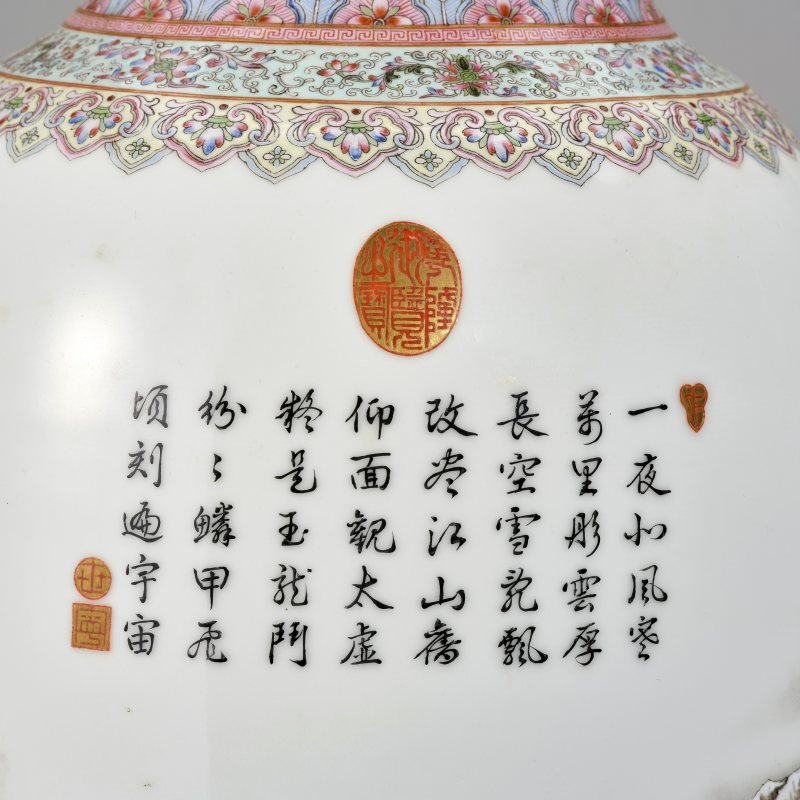 乾隆御覽之寶
一夜北風寒
萬里彤雲厚
長空雪亂飄
改尽江山舊
仰面觀太虛
疑是玉龍鬥
紛〻鱗甲飛
頃刻遍宇宙